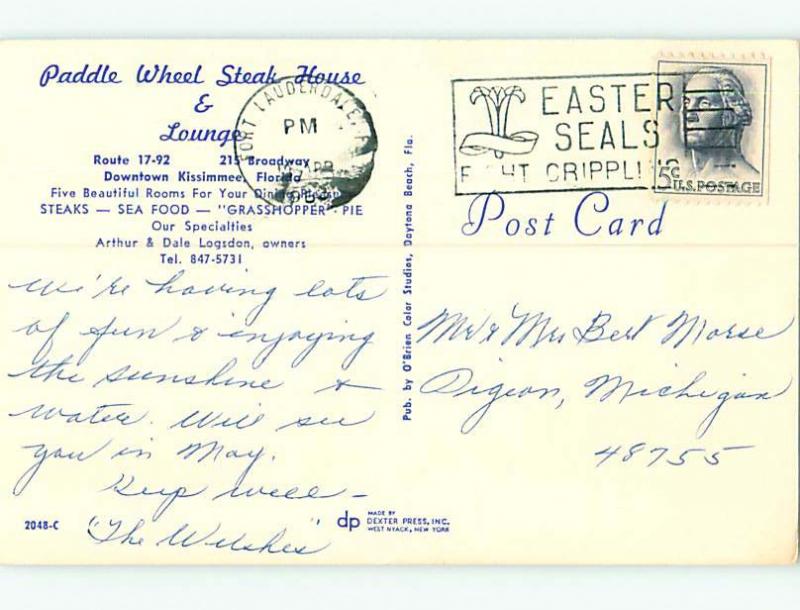 Paddle Wheel Steak House
&
Lounge
Route 17-92 215 Broadway
Downtown Kissimmee, Florida
Five Beautiful Rooms For Your Dining Pleasure
STEAKS — SEA FOOD — "GRASSHOPPER" PIE
Our Specialties
Arthur & Dale Logsdon, owners
Tel. 847-5731
We're having lots
of fun & enjoying
the sunshine &
water. Will see
you in May.
Keep well —
"The Welshes"
2048-C
FORT LAUDERDALE,
PM
APR
EASTER
SEALS
FIGHT CRIPPLING
5c
U.S. POSTAGE
Post Card
Pub. by O'Brien Color Studios, Daytona Beach, Fla.
Mr & Mrs Bert Morse
Pigeon, Michigan
48755
dp
MADE BY
DEXTER PRESS, INC.
WEST NYACK, NEW YORK